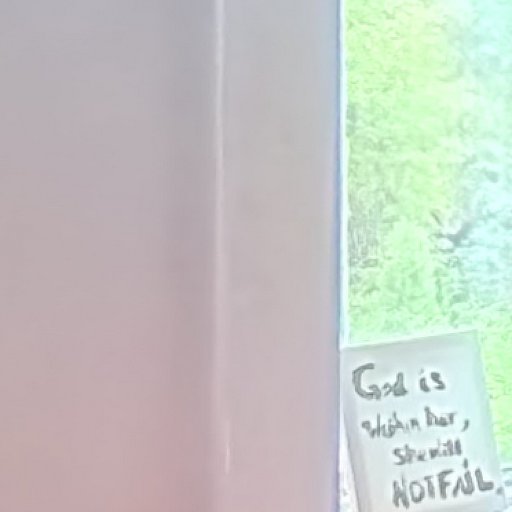 God is
within her,
she will
NOT FAIL.